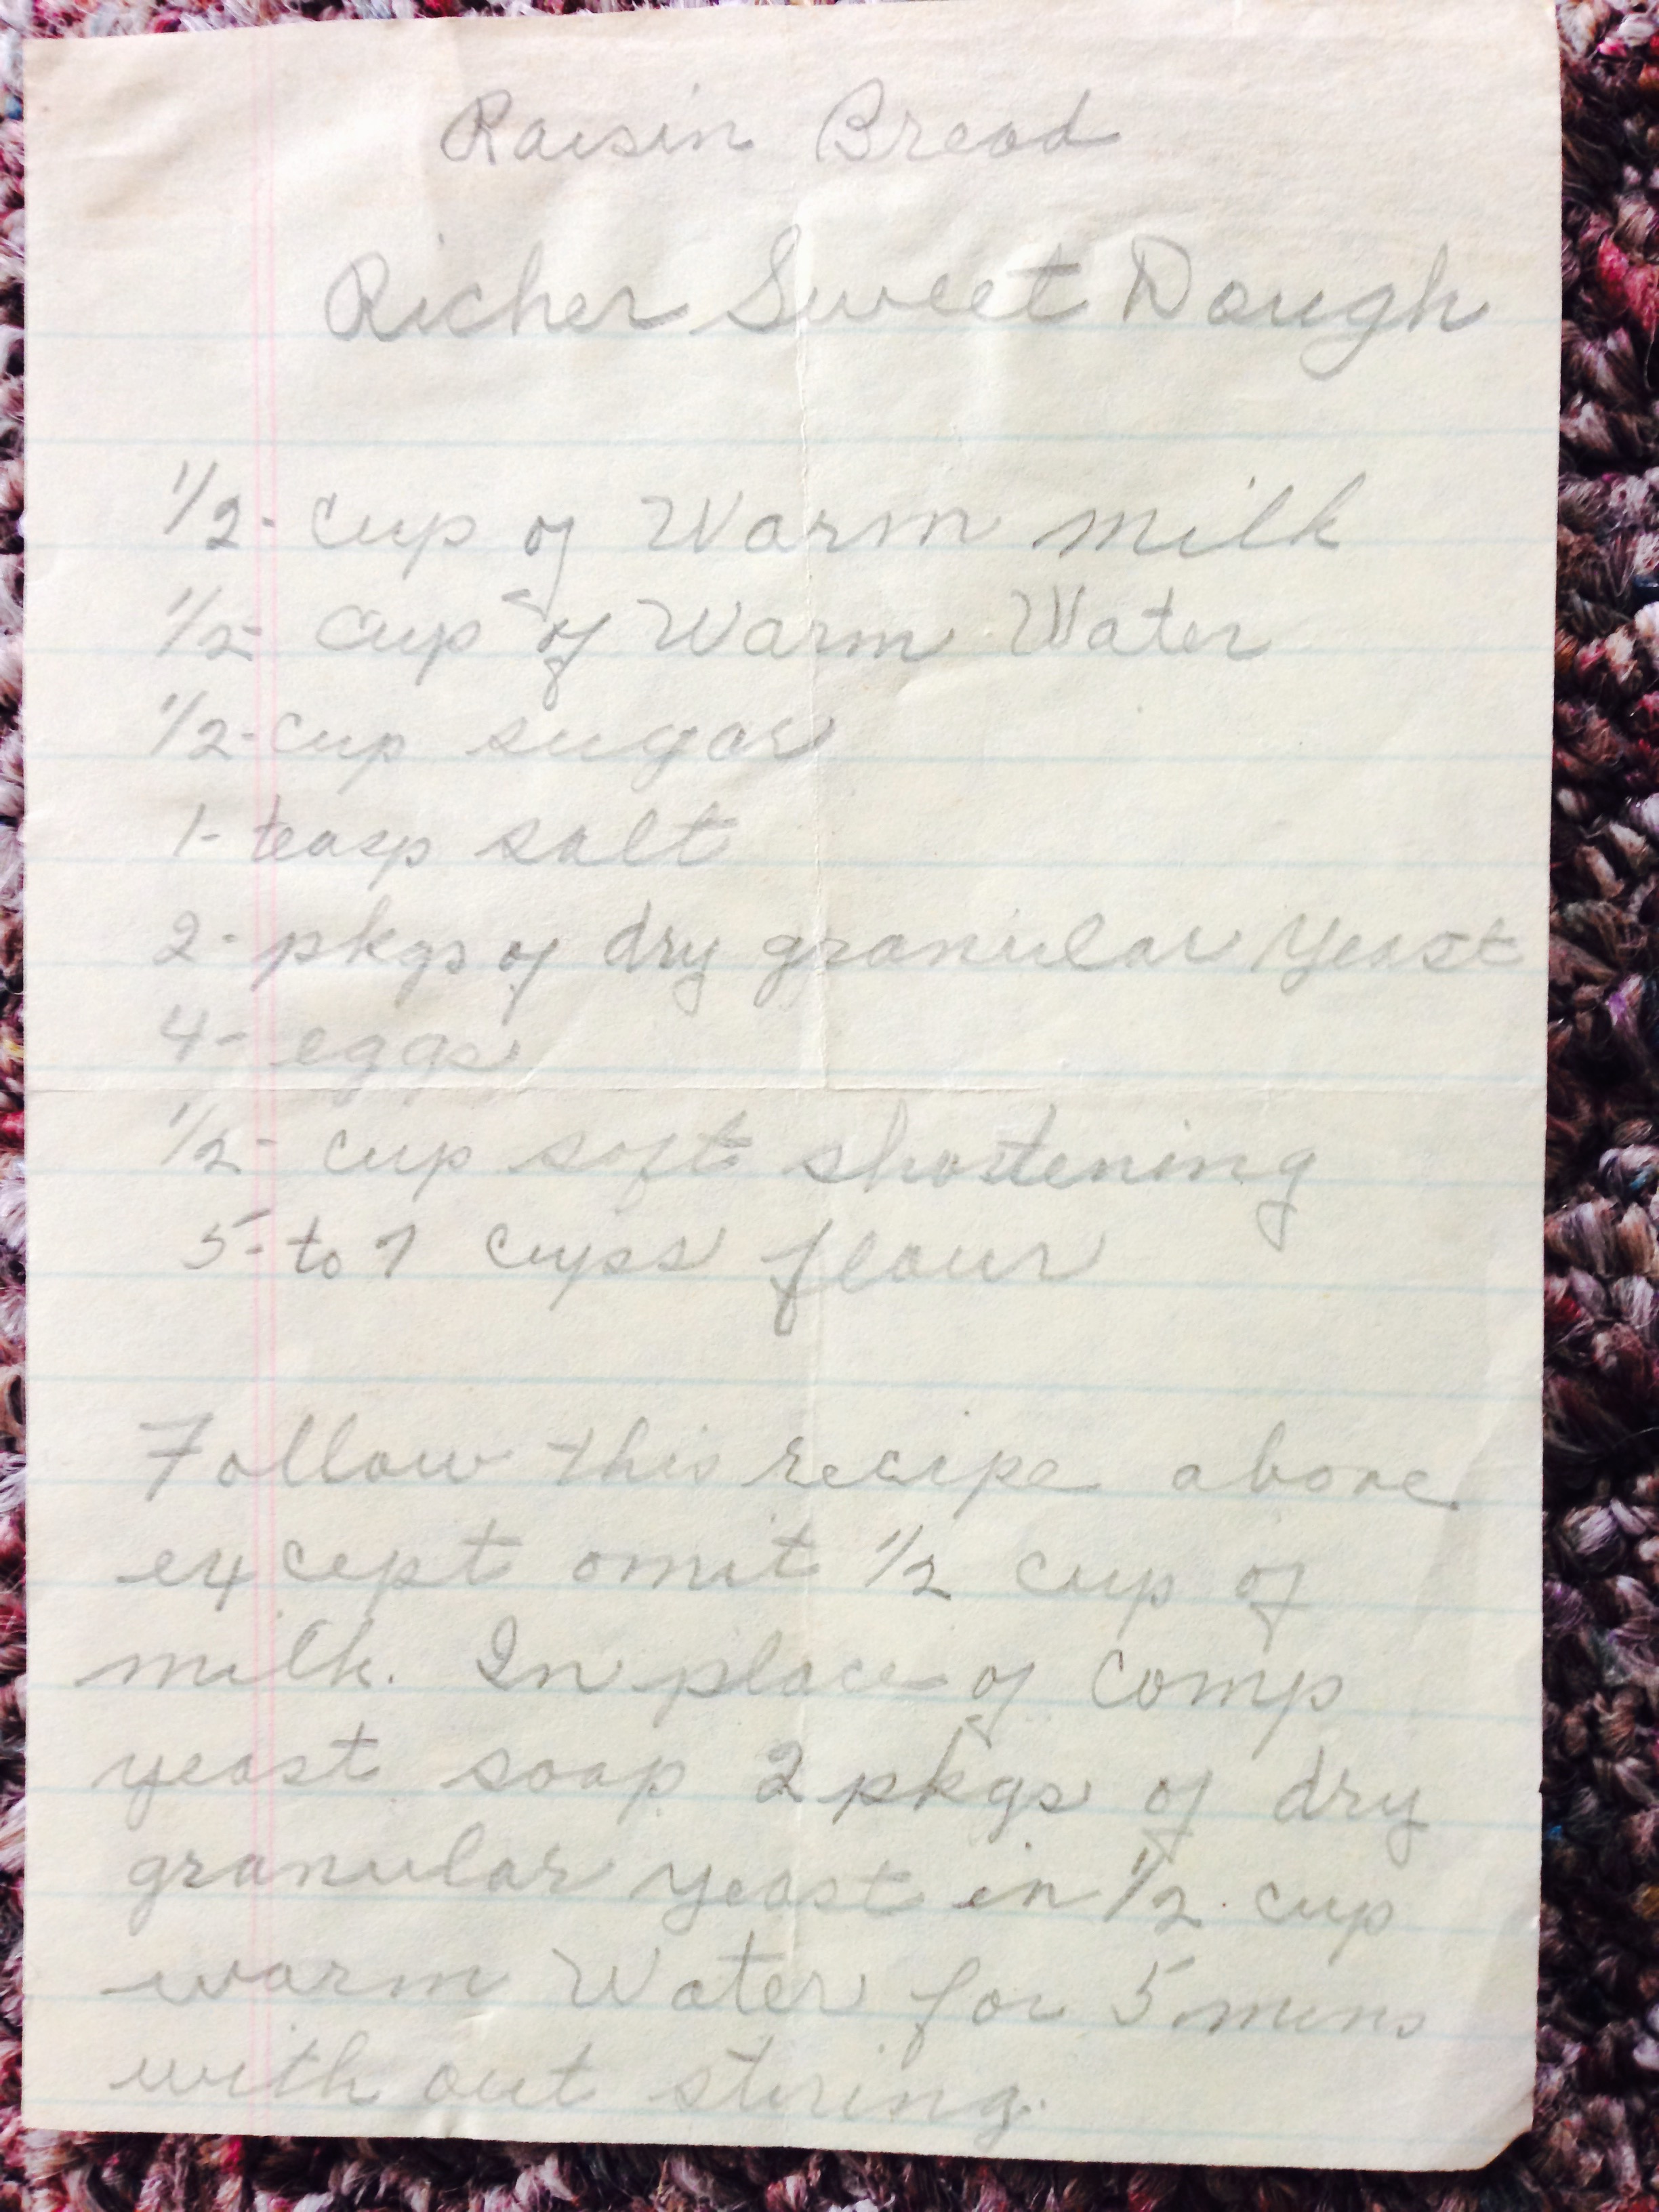 Raisin Bread
Richer Sweet Dough
1/2- cup of Warm milk
1/2- cup of Warm Water
1/2- cup sugar
1- teasp salt
2- pkgs of dry granular yeast
4- eggs
1/2- cup soft shortening
5- to 7 cups flour
Follow this recipe above
except omit 1/2 cup of
milk. In place of comp
yeast soap 2 pkgs of dry
granular yeast in 1/2 cup
warm Water for 5 mins
with out stiring.